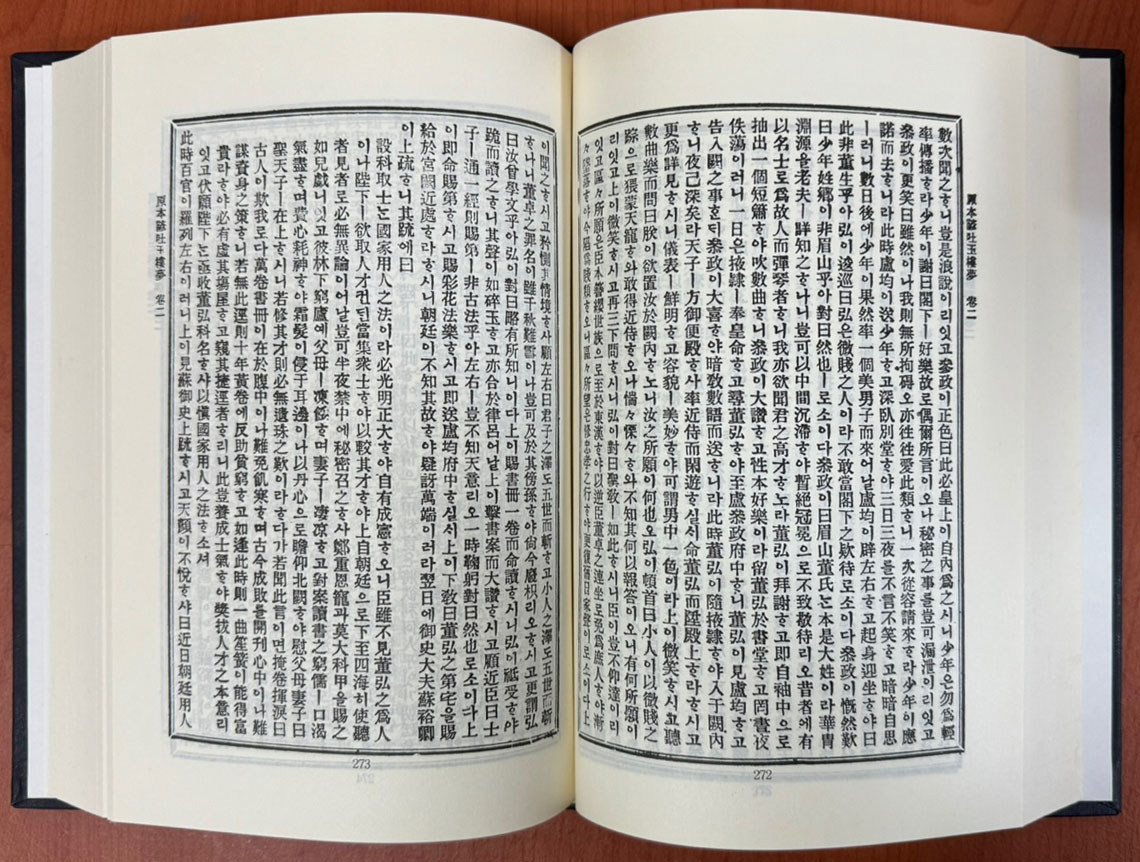 原本諺吐玉樓夢 卷二
數次聞之ᄒᆞ니豈是浪說이리잇고參政이正色曰此必皇上이自內爲之시니少年은勿爲輕
率傳播ᄒᆞ라少年이謝曰閣下ㅣ好樂故로偶爾所言이오나秘密之事ᄅᆞᆯ豈可漏泄이리잇고
參政이更笑曰雖然이나我則無所拘碍오亦往往愛此類ᄒᆞ니一次從容請來ᄒᆞ라少年이應
諾而去ᄒᆞ니라此時盧均이送少年ᄒᆞ고深臥別堂ᄒᆞ야三日三夜ᄅᆞᆯ不言不笑ᄒᆞ고暗自思
ㅣ러니數日後에少年이果然率一個美男子而來어ᄂᆞᆯ盧均이辟左右ᄒᆞ고起身迎坐ᄒᆞ야曰
此非董生乎아弘이逡巡曰弘은微賤之人이라不敢當閣下之欵待로소이다參政이慨然歎
曰少年姓鄕이非眉山乎아對曰然也ㅣ로소이다參政이曰眉山董氏ᄂᆞᆫ本是大姓이라華胄
淵源을老夫ㅣ詳知之ᄒᆞ나니豈可以中間沉滯ᄒᆞ야暫絕冠冕으로不致敬待리오昔者에有
以名士로爲故人而彈琴者ᄒᆞ니我亦欲聞君之高才ᄒᆞ노라董弘이拜謝ᄒᆞ고即自袖中으로
抽出一個短簫ᄒᆞ야吹數曲ᄒᆞ니參政이大讚ᄒᆞ고性本好樂이라留董弘於書堂ᄒᆞ고罔晝夜
佚蕩이러니一日은掖隷ㅣ奉皇命ᄒᆞ고尋董弘ᄒᆞ야至盧參政府中ᄒᆞ니董弘이見盧均ᄒᆞ고
告入闕之事ᄒᆞᆫᄃᆡ參政이大喜ᄒᆞ야暗敎數語而送ᄒᆞ니라此時董弘이隨掖隷ᄒᆞ야入于闕內
ᄒᆞ니夜已深矣라天子ㅣ方御便殿ᄒᆞ사率近侍而閑遊ᄒᆞ실시見董弘而陞殿ᄒᆞ라ᄒᆞ시고
更爲詳見ᄒᆞ시니儀表ㅣ鮮明ᄒᆞ고容貌ㅣ美妙ᄒᆞ야可謂男中一色이라上이微笑ᄒᆞ시고聽
數曲樂而問曰朕이欲置汝於闕內ᄒᆞ노니汝之所願이何也오弘이頓首曰小人이以微賤之
踪으로猥蒙天寵ᄒᆞ와敢得近侍ᄒᆞ오나惴惴慄慄ᄒᆞ와不知其何以報答이오니有何所願이
리잇고上이微笑ᄒᆞ시고再三下問ᄒᆞ시니弘이對曰聖敎ㅣ如此ᄒᆞ시니臣이豈不仰達이리
잇고區區所願은臣本簪纓世族으로至於東漢ᄒᆞ야以逆臣董卓之連坐로免爲庶人ᄒᆞ야漸
漸墜落ᄒᆞ야今陷爲賤類ᄒᆞ오니區區所望은修忠孝之行ᄒᆞ야更復舊日家聲이로소이다上
272
이聞之ᄒᆞ시고矜惻其情境ᄒᆞ사顧左右曰君子之澤도五世而斬ᄒᆞ고小人之澤도五世而斬
ᄒᆞ나니董卓之罪名이雖千秋難雪이나豈可及於其傍孫ᄒᆞ야尙今廢枳리오ᄒᆞ시고更謂弘
曰汝曾學文乎아弘이對曰略有所知니이다上이賜書冊一卷而命讀ᄒᆞ시니弘이祗受ᄒᆞ야
跪而讀之ᄒᆞ니其聲이如碎玉ᄒᆞ고亦合於律呂어ᄂᆞᆯ上이擊書案而大讚ᄒᆞ시고顧近臣曰士
子ㅣ一通一經則賜第ㅣ非古法乎아左右ㅣ豈不知天意리오一時鞠躬對曰然也로소이다上
이即命賜第ᄒᆞ시고賜彩花法樂ᄒᆞ시고即送盧均府中ᄒᆞ실시上이下敎曰董弘之第宅을賜
給於宮闕近處ᄒᆞ라ᄒᆞ시니朝廷이不知其故ᄒᆞ야疑訝萬端이러라翌日에御史大夫蘇裕卿
이上疏ᄒᆞ니其疏에曰
設科取士ᄂᆞᆫ國家用人之法이라必光明正大ᄒᆞ야自有成憲ᄒᆞ오니臣雖不見董弘之爲人
이나陛下ㅣ欲取人才컨ᄃᆡᆫ當集衆士ᄒᆞ야以較其才ᄒᆞ야上自朝廷으로下至四海히使聽
者見者로必無異論이어ᄂᆞᆯ豈可半夜禁中에秘密召之ᄒᆞ사鄭重恩寵과莫大科甲을賜之
如兒戱니잇고彼林下窮廬에父母ㅣ凍餒ᄒᆞ며妻子ㅣ凄凉ᄒᆞ고對案讀書之窮儒ㅣ口渴
氣盡ᄒᆞ며費心耗神ᄒᆞ야霜髮이侵于耳邊이나以丹心으로瞻仰北闕ᄒᆞ야慰父母妻子曰
聖天子ㅣ在上ᄒᆞ시니若修其才則必無遺珠之歎이라ᄒᆞ다가若聞此言이면掩卷揮淚曰
古人이欺我로다萬卷書冊이在於腹中이나難免飢寒ᄒᆞ며古今成敗ᄅᆞᆯ開刊心中이나難
謀資身之策ᄒᆞ니若無此逕則十年黃卷에反助貧窮ᄒᆞ고如逢此時則一曲笙簧이能得富
貴라ᄒᆞ야必有虛其塲屋ᄒᆞ고窺其捷逕者ᄒᆞ리니此豈養成士氣ᄒᆞ야奬拔人才之本意리
잇고伏願陛下ᄂᆞᆫ亟收董弘科名ᄒᆞ샤以愼國家用人之法ᄒᆞ소셔
此時百官이羅列左右이러니上이見蘇御史上疏ᄒᆞ시고天顔이不悅ᄒᆞ샤曰近日朝廷用人
原本諺吐玉樓夢 卷二
273